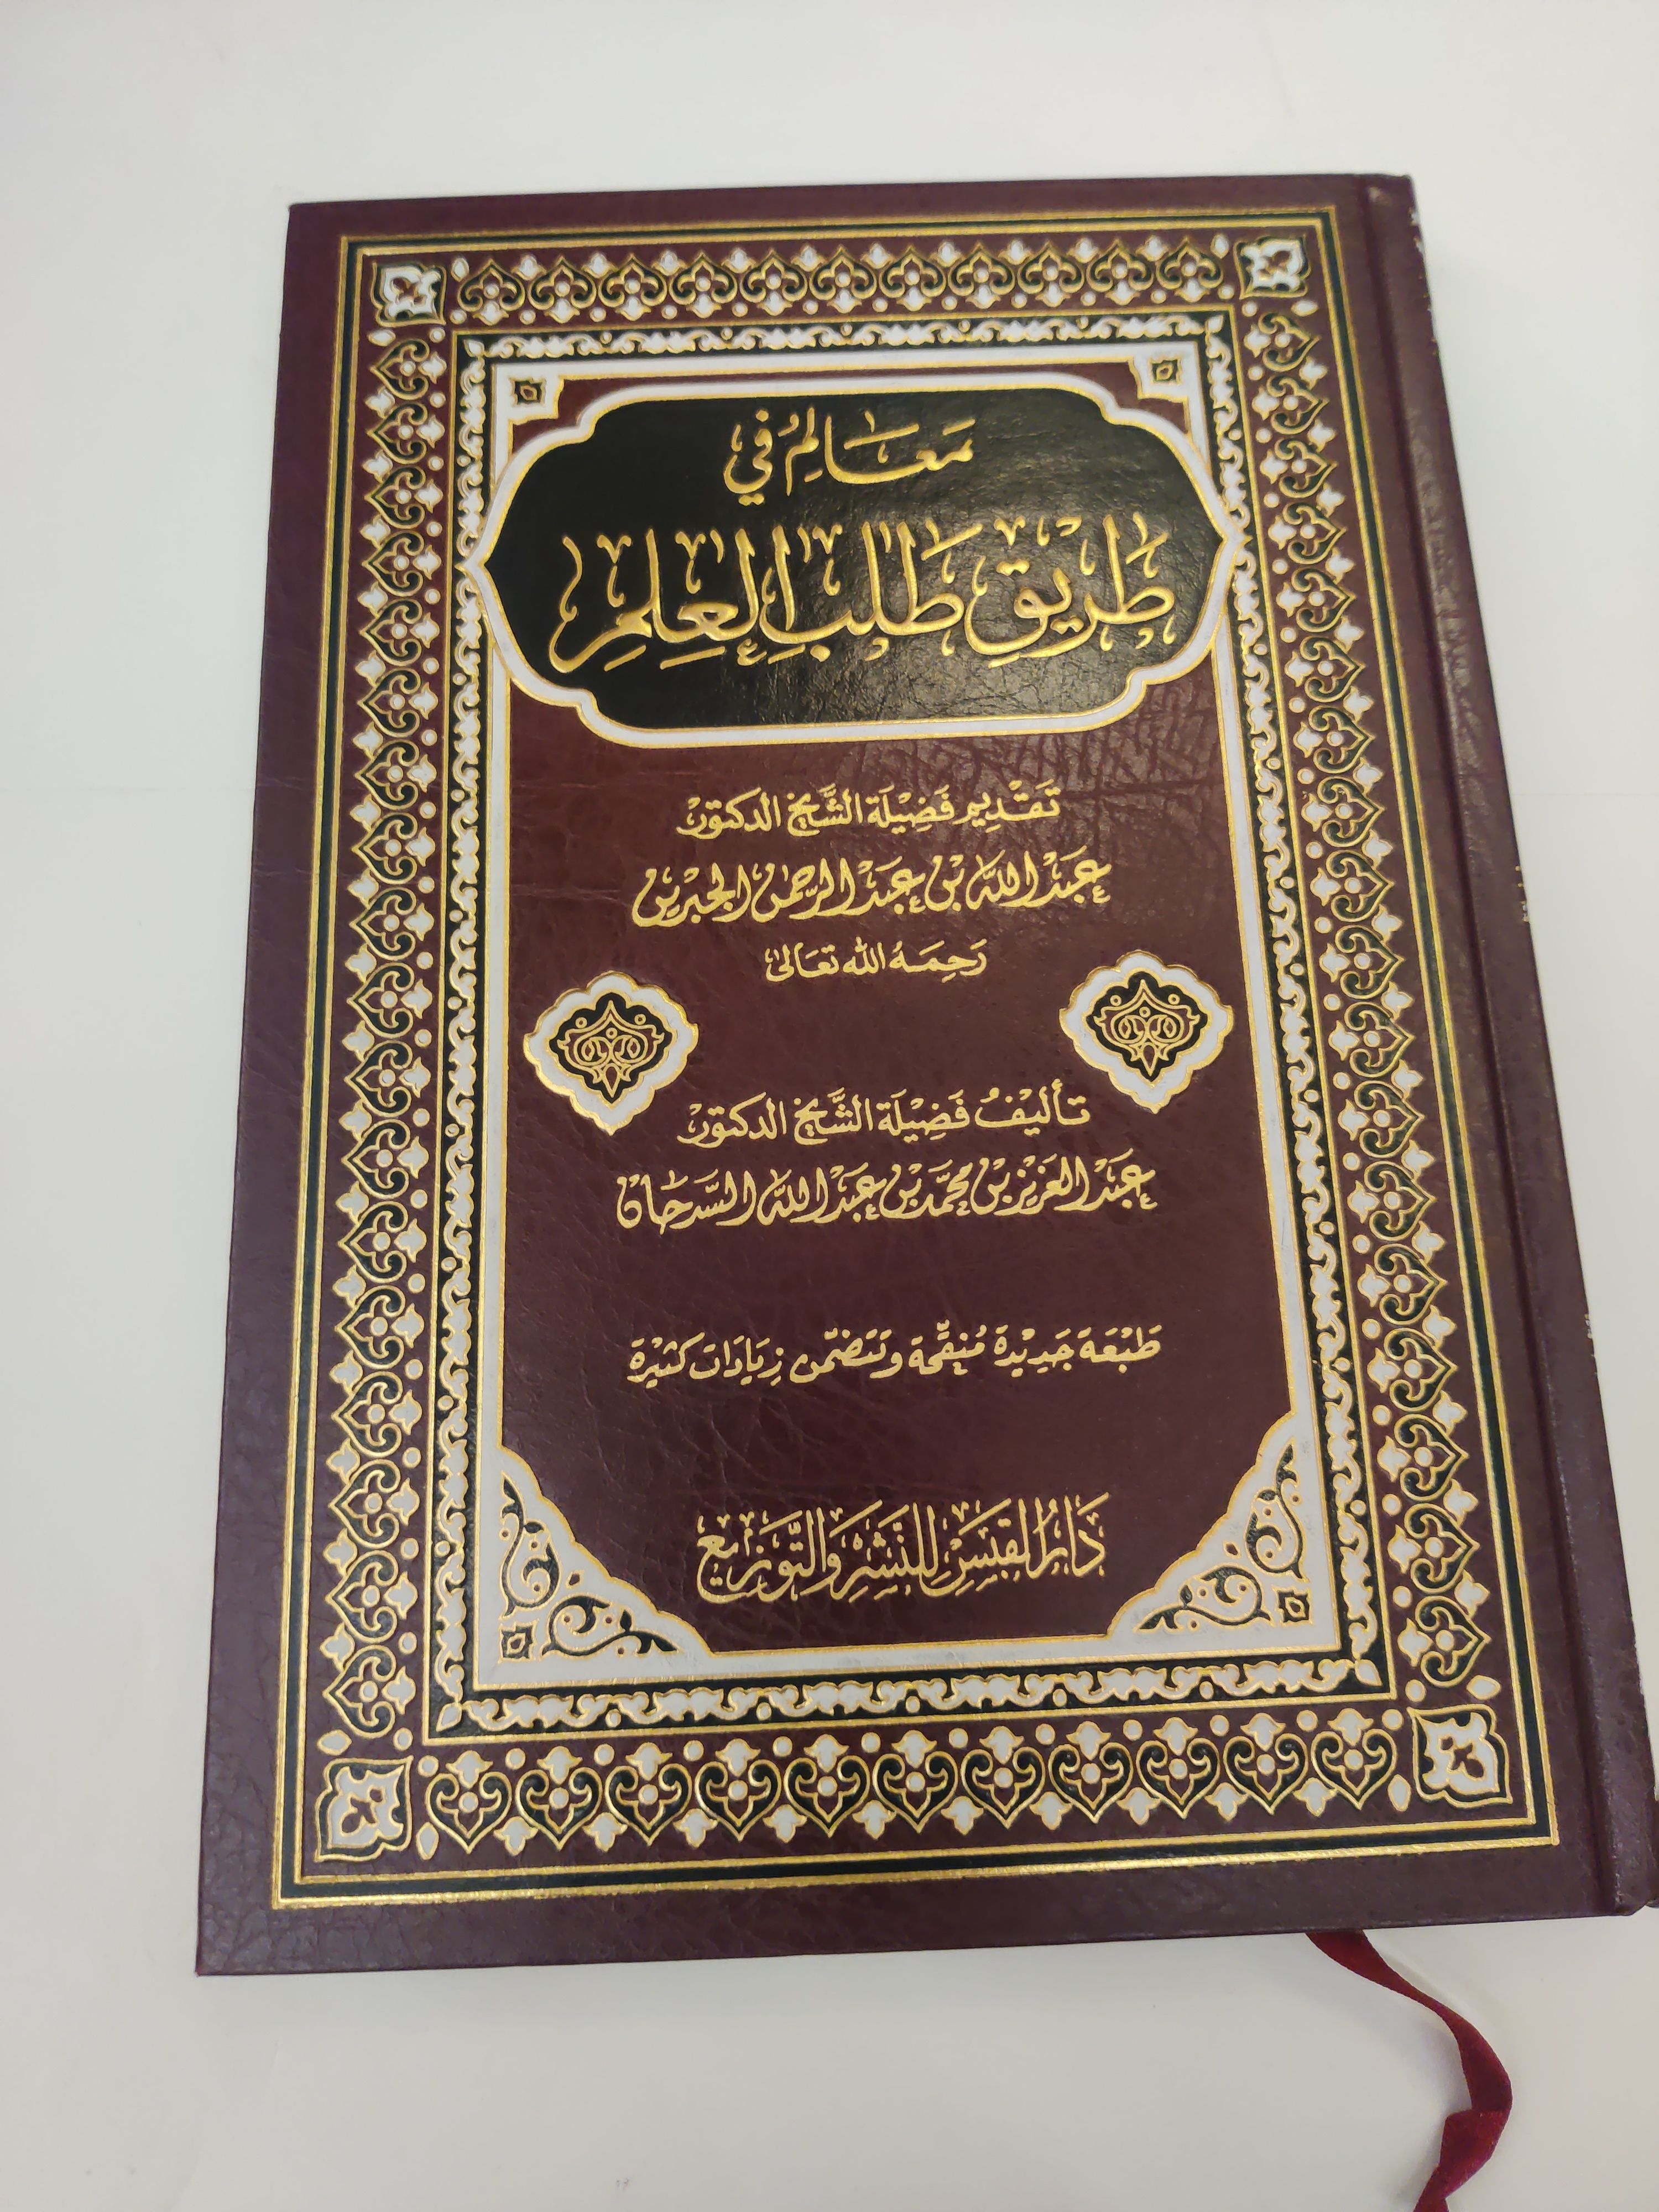 مَعَالِمُ في
طَرِيقِ طَلَبِ العِلمِ
تَقْدِيم فَضِيْلَة الشَّيخ الدكتورْ
عَبْد اللَّه بن عَبْد الرحمن الجبرين
رَحِمَهُ الله تعَالىٰ
تأليفُ فَضِيْلَة الشَّيخ الدكتورْ
عَبْد العَزيز بن محمَّد بن عَبْد اللَّه السَّدحَان
طَبْعَة جَدِيْدة مُنقَّحة وتَتضمّن زيَادَات كثيْرة
دَارُ القبَسِ لِلنَّشْرِ وَالتَّوزيع